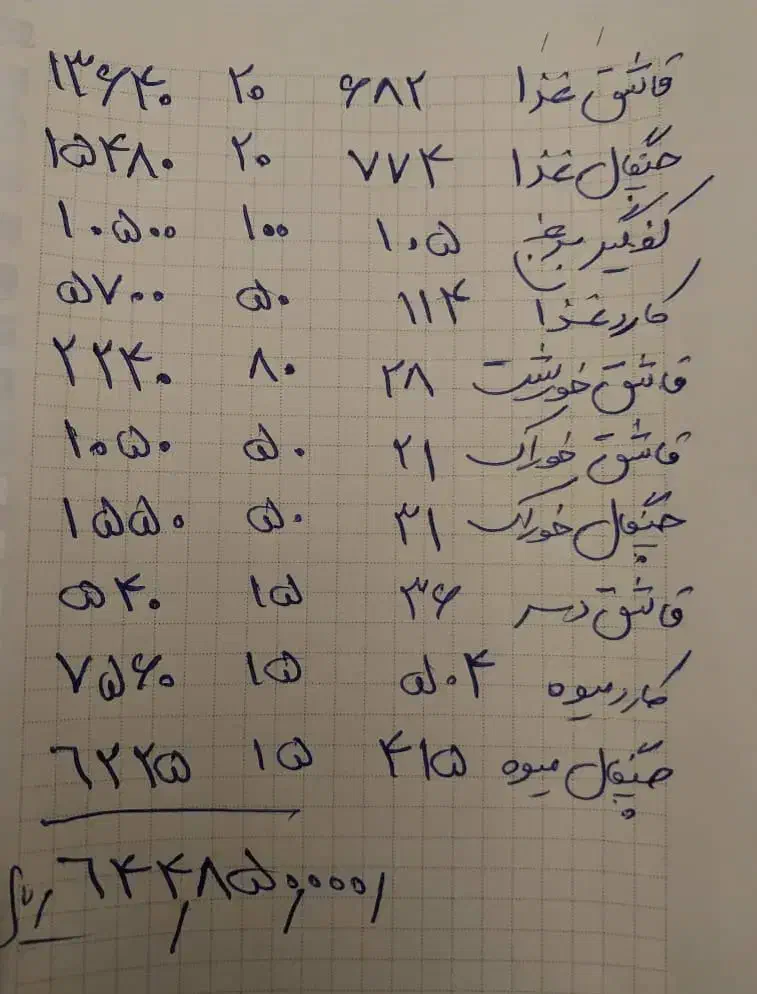 قاشق غذا ۶۸۲ ۲۰ ۱۳۶۴۰
چنگال غذا ۷۷۴ ۲۰ ۱۵۴۸۰
کفگیر برنج ۱۰۵ ۱۰۰ ۱۰۵۰۰
کارد غذا ۱۱۴ ۵۰ ۵۷۰۰
قاشق خورشت ۲۸ ۸۰ ۲۲۴۰
قاشق خوراک ۲۱ ۵۰ ۱۰۵۰
چنگال خوراک ۳۱ ۵۰ ۱۵۵۰
قاشق دسر ۳۶ ۱۵ ۵۴۰
کارد میوه ۵۰۴ ۱۵ ۷۵۶۰
چنگال میوه ۴۱۵ ۱۵ ۶۲۲۵
۶۴۴,۸۵۰,۰۰۰ ریال